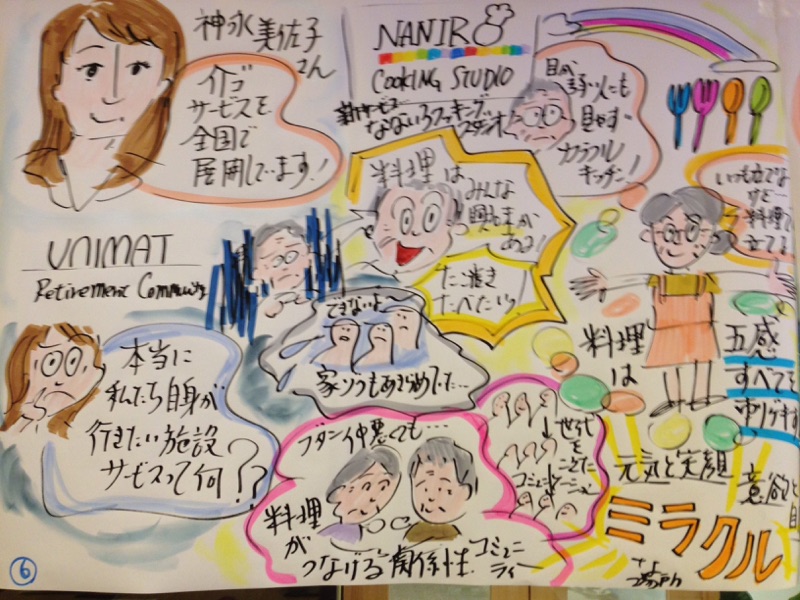 神永美佐子
さん
介ゴ
サービスを
全国で
展開しています!
NANIRO
COOKING STUDIO
新サービス
なないろクッキング
スタジオ
目が
悪い人にも
見やすい
カラフル
キッチン!
UNIMAT
Retirement Community
本当に
私たち自身が
行きたい施設
サービスって何??
料理は
みんな
興味が
ある!
たこ焼き
たべたい!
できないよ〜
家ゾクもあきらめてた…
いつも立てない
けど
料理で
立てる
料理
は
五感
すべてを
ゆりうごかす
フダン仲悪くても…
料理
が
つなげる関係性
コミュニ
ティー
世代
を
こえた
コミュニケーション
元気と笑顔
意欲と
自
ミラクル
⑥